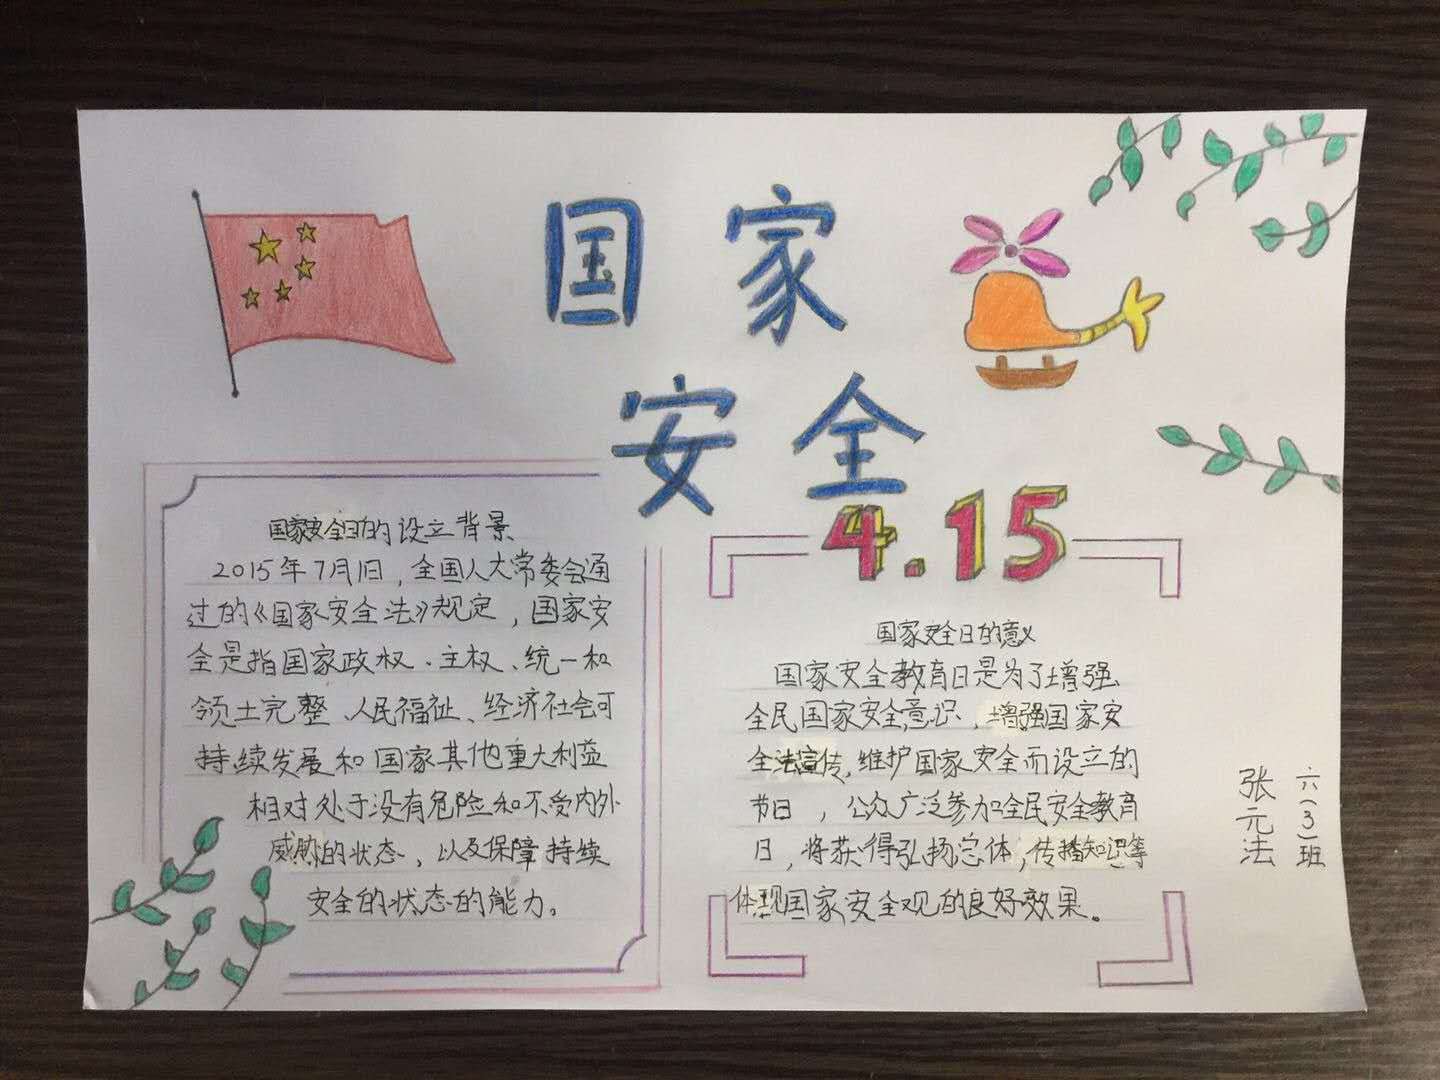 国家
安全
4.15
国家安全日的设立背景
2015年7月1日，全国人大常委会通
过的《国家安全法》规定，国家安
全是指国家政权、主权、统一和
领土完整、人民福祉、经济社会可
持续发展和国家其他重大利益
相对处于没有危险和不受内外
威胁的状态，以及保障持续
安全的状态的能力。
国家安全日的意义
国家安全教育日是为了增强
全民国家安全意识，增强国家安
全法宣传，维护国家安全而设立的
节日，公众广泛参加全民安全教育
日，将获得弘扬总体，传播知识等
体现国家安全观的良好效果。
六(3)班
张元法